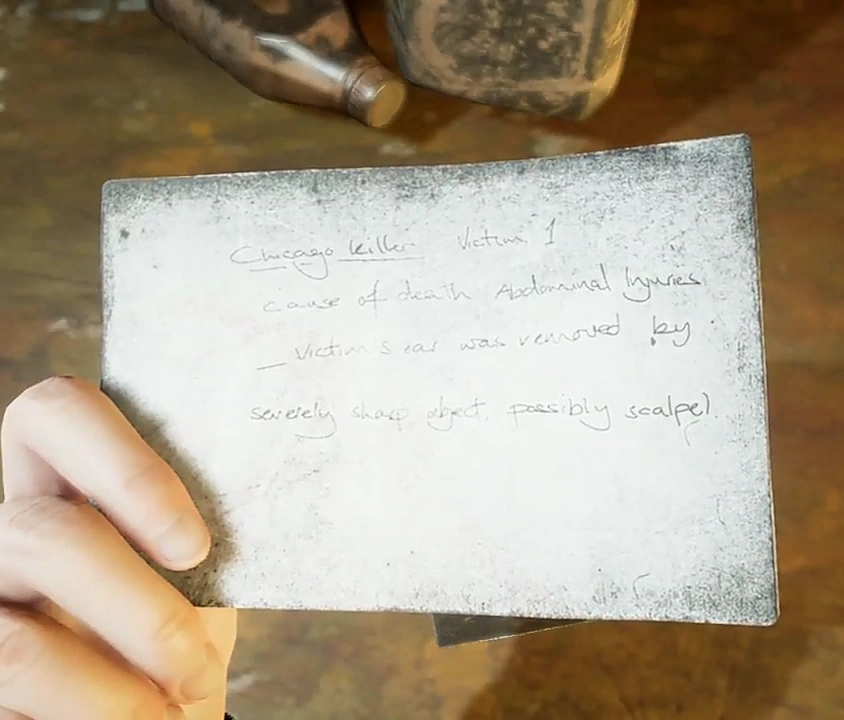 Chicago killer Victim 1
cause of death Abdominal Injuries
_ Victim's ear was removed by
severely sharp object. possibly scalpel.